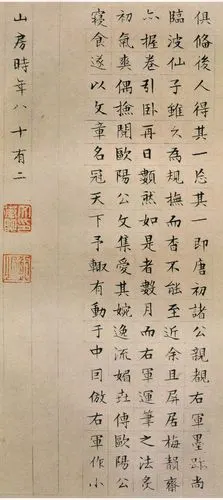 俱備後人得其一忘其一即唐初諸公親覩右軍墨跡尚
臨波仙子雖久為規撫而杳不能至近余且屏居梅韻齋
握卷引卧再日數然如是者數月而右軍運筆之法
初氣爽偶撿閱歐陽公文集愛其婉逸流媚傳歐陽公
寢食遂以文章名冠天下予輙有動于中因倣右軍作小
山房時年八十有二